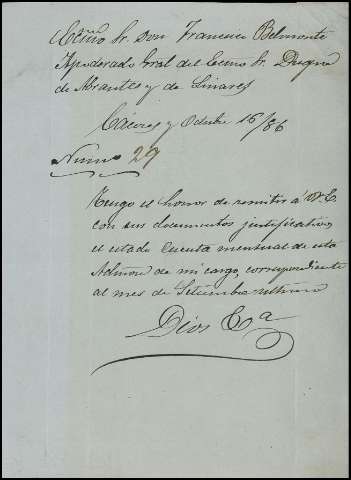 Excmo Sr. don Francisco Belmonte
Apoderado Gral del Excmo Sr. Duque
de Abrantes y de Linares
Cáceres y Octubre 16/86
Numo 29
Tengo el honor de remitir á V.E.
con sus documentos justificativos
el estado Cuenta mensual de esta
Admon de mi cargo, correspondiente
al mes de Setiembre ultimo
Dios &a